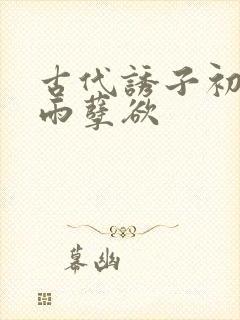 古代誘子初
雨孽欲
幕幽